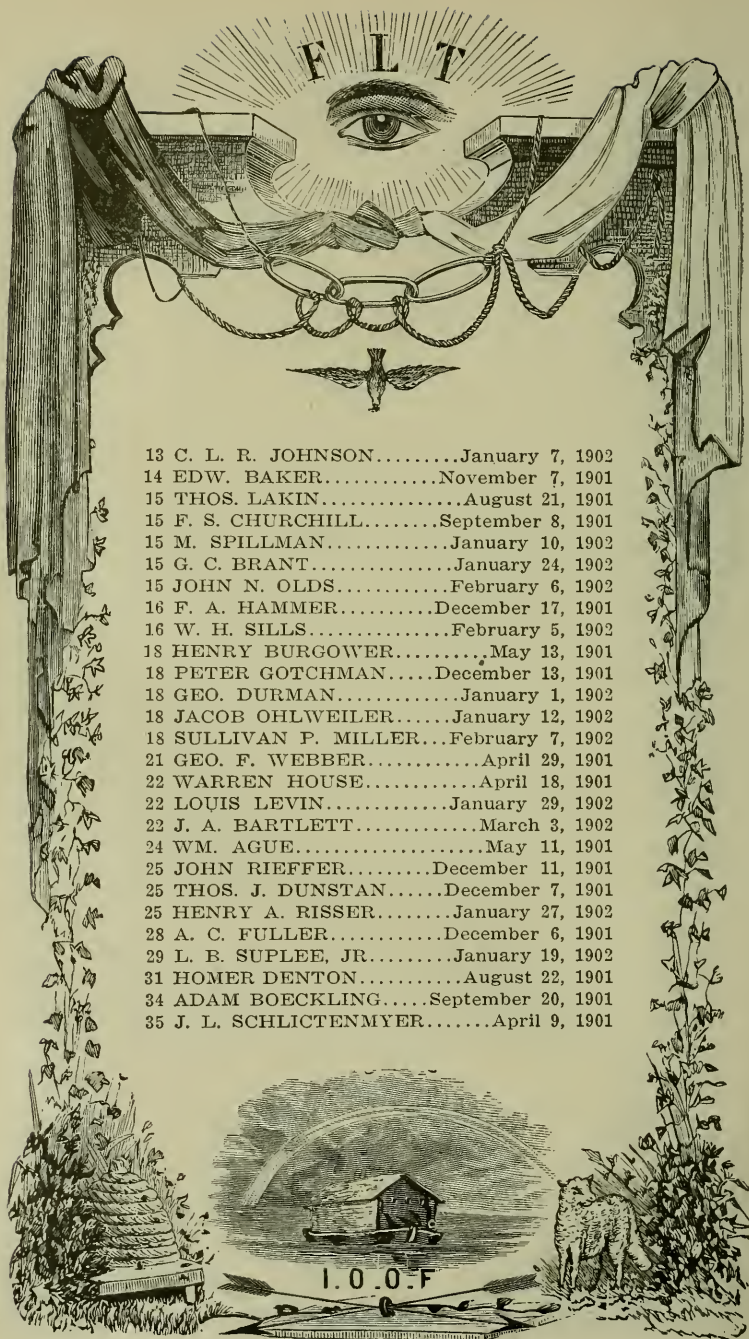 F L T
13 C. L. R. JOHNSON.........January 7, 1902
14 EDW. BAKER............November 7, 1901
15 THOS. LAKIN...............August 21, 1901
15 F. S. CHURCHILL........September 8, 1901
15 M. SPILLMAN.............January 10, 1902
15 G. C. BRANT...............January 24, 1902
15 JOHN N. OLDS............February 6, 1902
16 F. A. HAMMER..........December 17, 1901
16 W. H. SILLS...............February 5, 1902
18 HENRY BURGOWER..........May 13, 1901
18 PETER GOTCHMAN.....December 13, 1901
18 GEO. DURMAN.............January 1, 1902
18 JACOB OHLWEILER......January 12, 1902
18 SULLIVAN P. MILLER...February 7, 1902
21 GEO. F. WEBBER............April 29, 1901
22 WARREN HOUSE............April 18, 1901
22 LOUIS LEVIN.............January 29, 1902
22 J. A. BARTLETT.............March 3, 1902
24 WM. AGUE....................May 11, 1901
25 JOHN RIEFFER.........December 11, 1901
25 THOS. J. DUNSTAN......December 7, 1901
25 HENRY A. RISSER........January 27, 1902
28 A. C. FULLER............December 6, 1901
29 L. B. SUPLEE, JR.........January 19, 1902
31 HOMER DENTON...........August 22, 1901
34 ADAM BOECKLING.....September 20, 1901
35 J. L. SCHLICTENMYER.......April 9, 1901
I.O.O.F